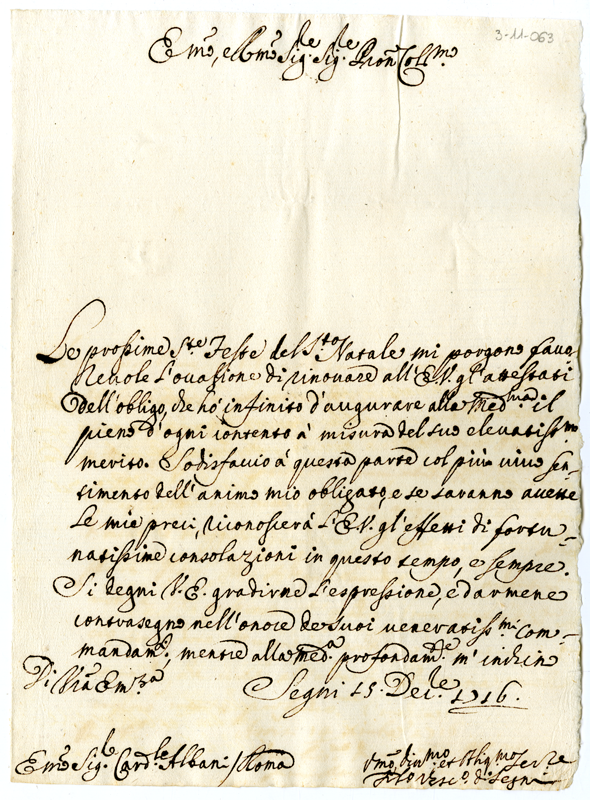 3-11-063
Emo, e Rmo Sigre Sigre Pron Collmo
Le prossime Ste Feste del Sto Natale mi porgono favo-
revole l'ovasione di rinovare all'E.V. gl'attestati
dell'obligo, che hò infinito d'augurare alla medma il
pieno d'ogni contento à misura del suo elevatissmo
merito. Sodisfaccio à questa parte col più vivo sen-
timento dell'animo mio obligato, e se saranno accette
le mie preci, riconoscerà l'E.V. gl'effetti di fortu-
natissime consolazioni in questo tempo, e sempre.
Si degni V.E. gradirne l'espressione, e darmene
contrasegno nell'onore de suoi veneratissmi Com-
mandamti, mentre alla meda profondamte m'inchino
Di Vra Emza Segni 15 Decre 1716.
Emo Sigre Cardle Albani / Roma
Vmo, Divmo, et Obligmo Serre
Vesco di Segni